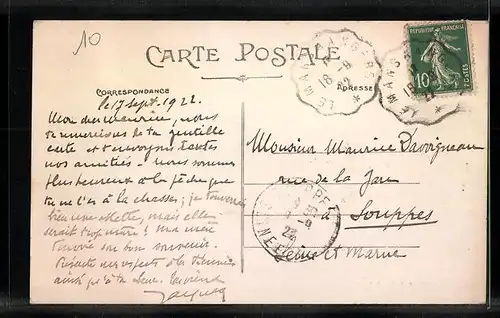 10
CARTE POSTALE
CORRESPONDANCE
ADRESSE
LE MANS A ANGERS
18-9
22
RÉPUBLIQUE FRANÇAISE
10
POSTES
LE MANS
18
le 17 Sept. 1922
Mon cher Maurice, nous
te remercions de ta gentille
carte et t'envoyons toutes
nos amitiés. nous sommes
plus heureux à la pêche que
tu ne l'es à la chasse; je
bien une mais elle
serait trop ! Ma mère
t'envoie son bon souvenir.
respects à ta
ainsi qu'à ta
Jacques
Monsieur Maurice Davrigneau
rue de la Gare
à
Souppes
Seine et Marne